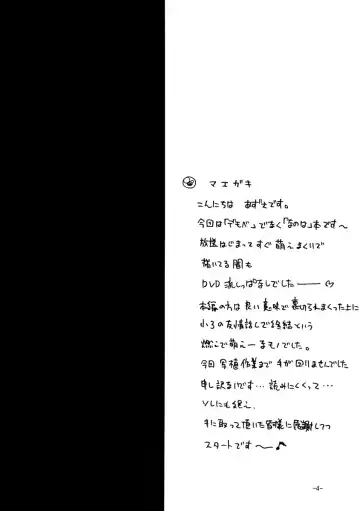 マエガキ
こんにちは あずまです。
今回は「デモベ」でなく「なのは」本です〜
放送はじまってすぐ萌えまくりで
描いてる間も
DVD流しっぱなしでした——
本編の方は良い意味で裏切られまくった上に
の友情話しで終結という
燃えで萌えーるモノでした。
今回写植作業まで手が回りませんでした
申し訳ないです…読みにくくって…
ソレにも絶え、
手に取って頂いた皆様に感謝しつつ
スタートです〜♪
-4-